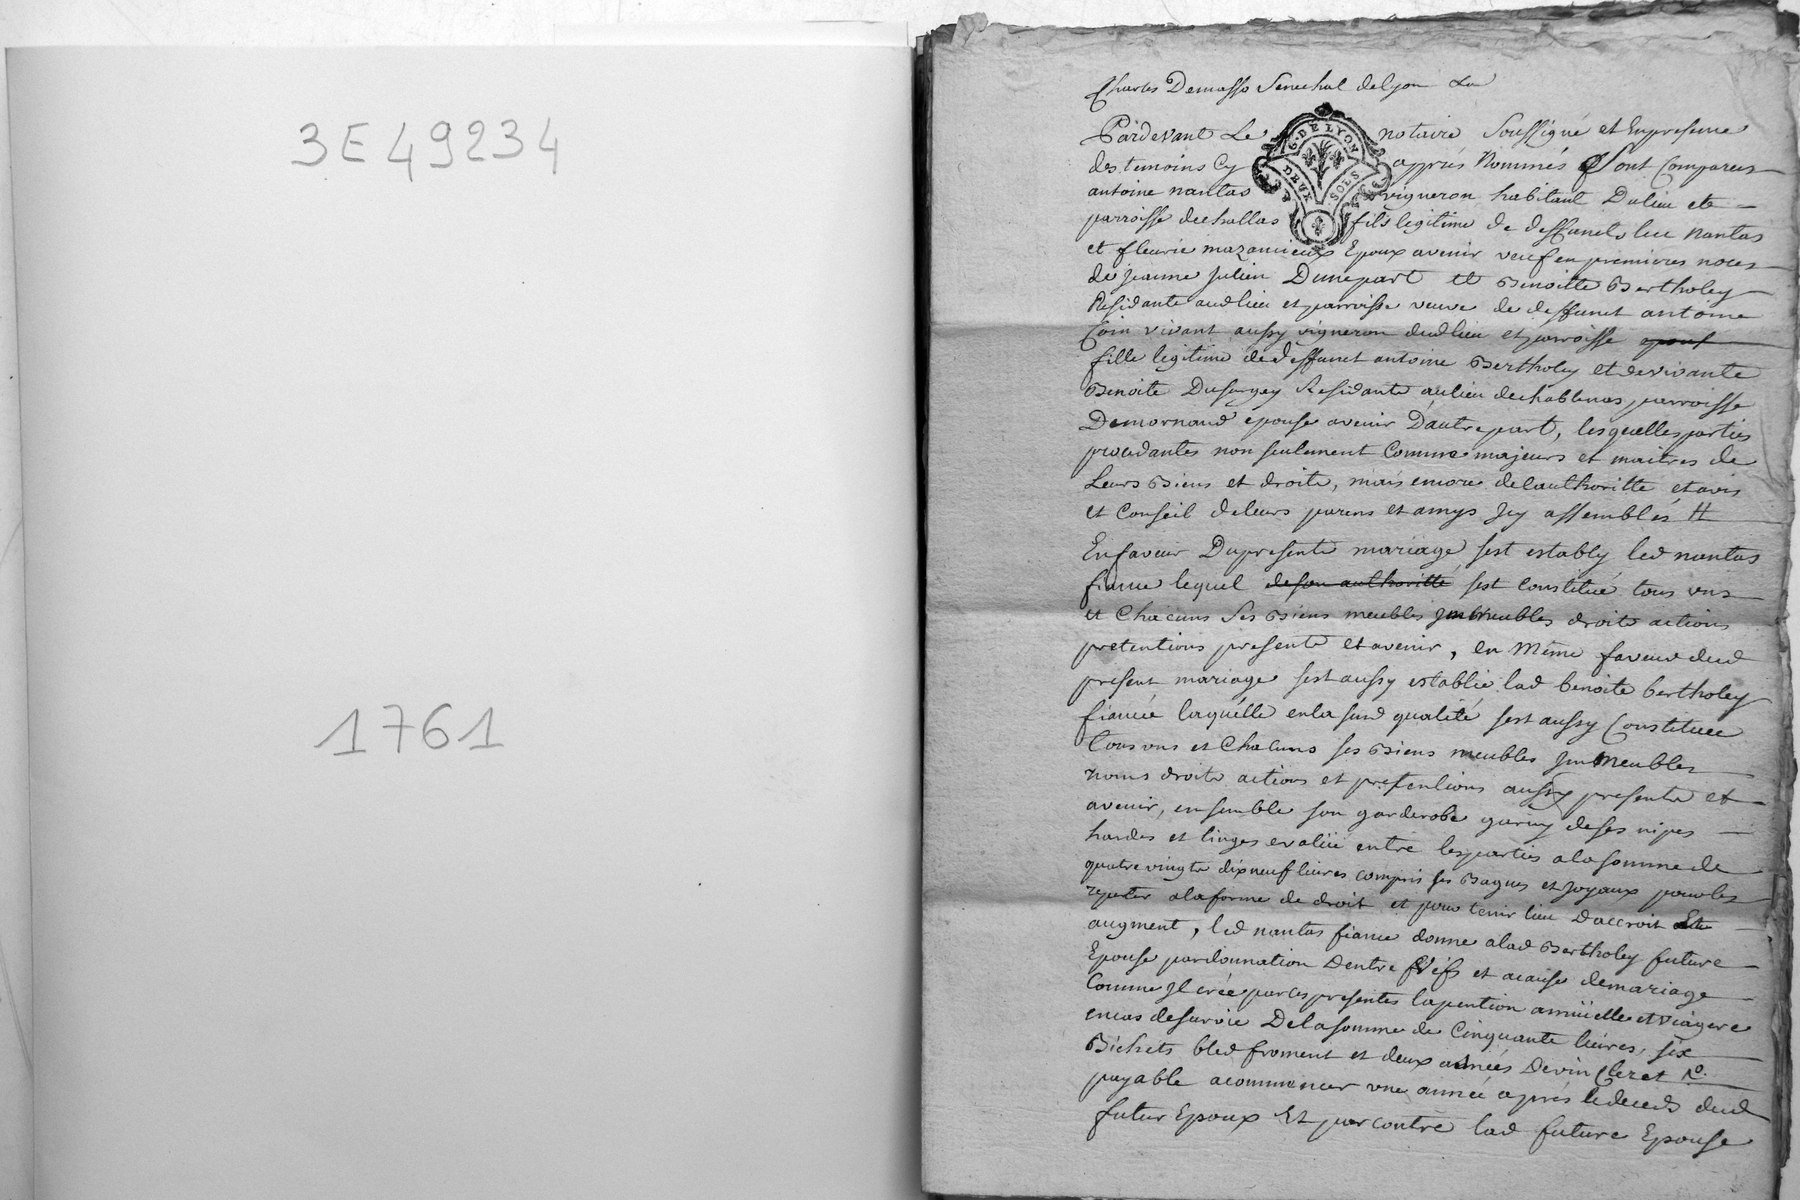 3E49234
1761
Charles Demasso Senechal de Lyon
G. DE LYON
DEUX SOLS
Pardevant Le notaire Soussigné et Enpresence
des temoins Cy apprés Nommés Sont Comparus
antoine nantas vigneron habitant Dulieu et
parroisse dechallas fils legitime de deffunct luc nantas
et fleurie mazancieux Epoux avenir veuf en premieres noces
de jeanne Julien Dunepart et Benoitte Bertholey
Residante audlieu et parroisse veuve de deffunct antoine
Coin vivant aussy vigneron dudlieu et parroisse
fille legitime dedeffunct antoine Bertholey et devivante
Benoite Dusurgey Residante aulieu dechablenas parroisse
Demornand épouse avenir D'autre part, lesquelles parties
procedantes non seulement Comme majeurs et maitres de
Leurs Biens et droits, mais encore delauthoritté et avis
et Conseil deleurs parens et amys Jcy assemblés
Enfaveur Dupresent mariage sest estably led nantas
fiancé lequel de son authoritté sest constitué tous uns
et Chacuns Ses Biens meubles Jmmeubles droits actions
pretentions presents et avenir, en Même faveur dud
present mariage sest aussy establie lad benoite bertholey
fiancée laquélle enla susd qualité sest aussy Constituée
Tous uns et Chacuns ses Biens meubles Jmmeubles
noms droits actions et pretentions aussy presents et
avenir, ensemble son garderobe garny deses nipes
hardes et linges evalüé entre lesparties alasomme de
quatrevingts dixneuf livres compris ses Bagues et Joyaux pourles
alaforme de droit et pour tenir lieu D'accroit
augment, led nantas fiancé donne alad Bertholey future
Epouse pardonnation Dentre vifs et acause demariage
Comme Jl créé parces presentes lapention annüelle et viagere
encas desurvie Delasomme de Cinquante livres, six
Bichets bled froment et deux asnées Devin Cleret
payable acommencer une année aprés ledeceds dud
futur Epoux Et par contre lad future Epouse